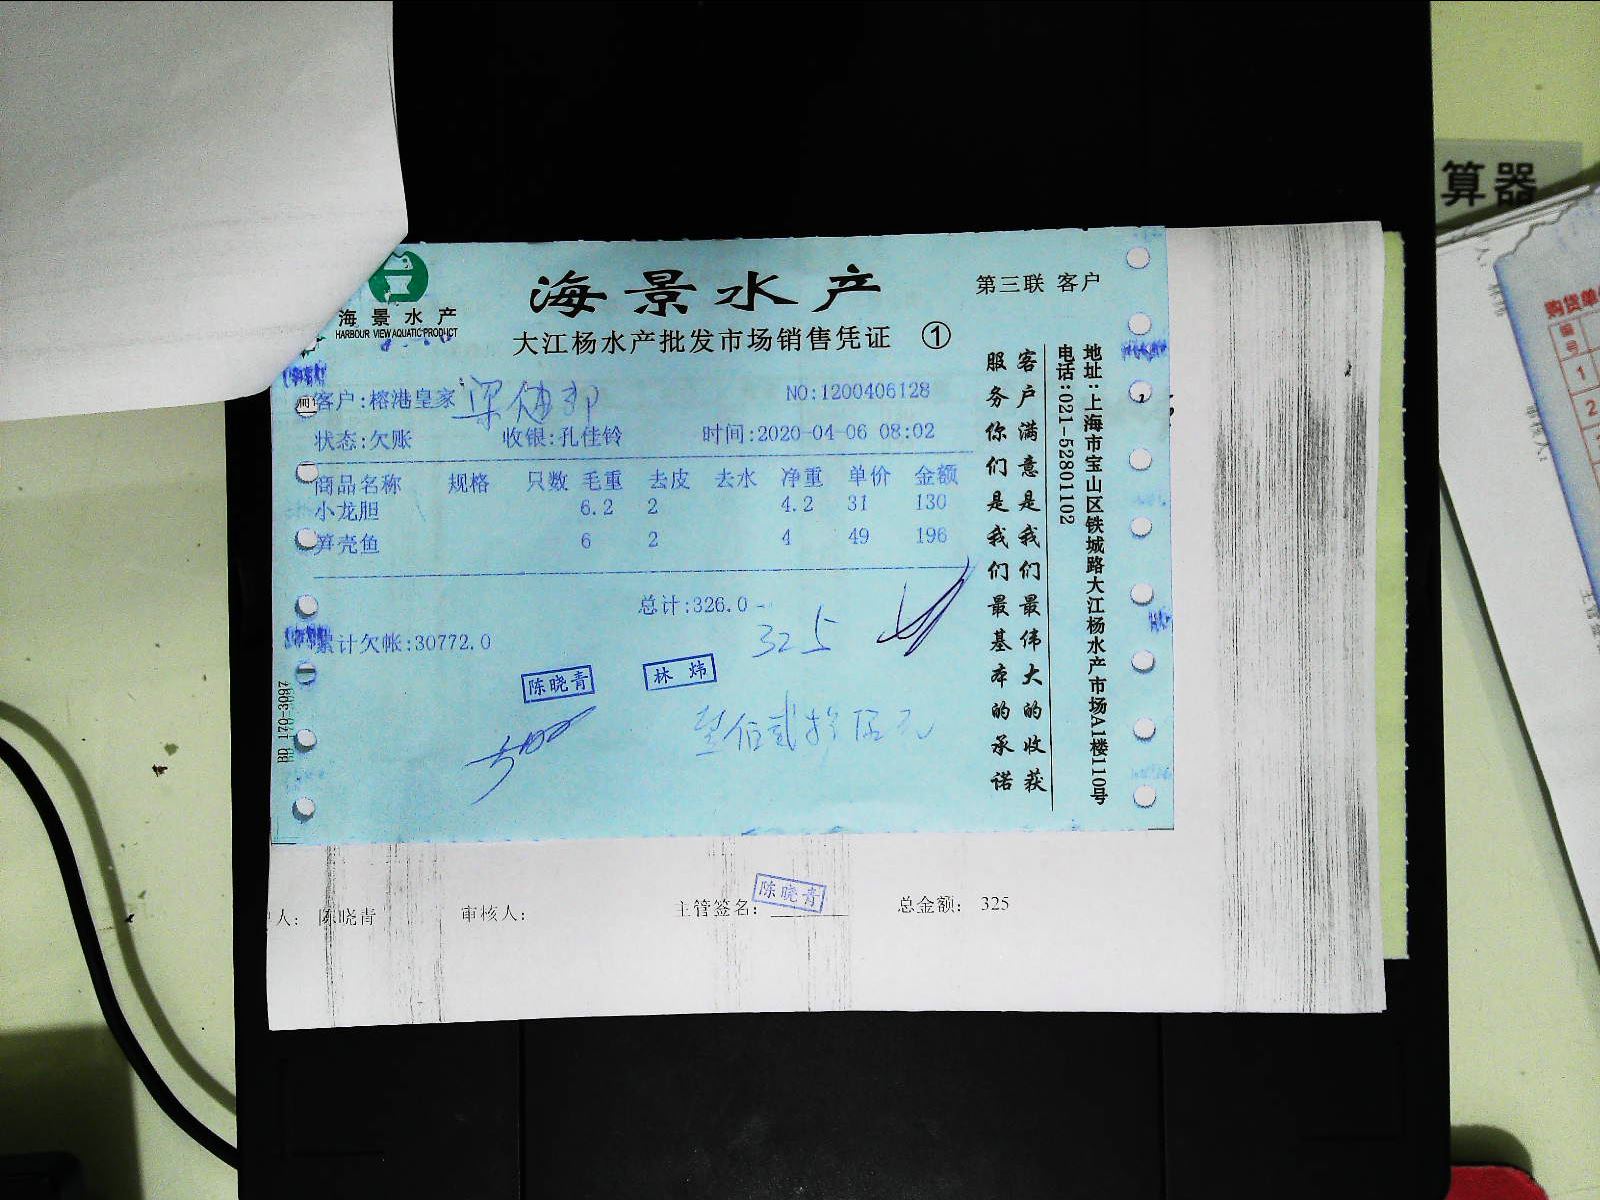 算器
海景水产
HARBOUR VIEW AQUATIC PRODUCT
海景水产
第三联 客户
大江杨水产批发市场销售凭证 ①
客户:榕港皇家
NO:1200406128
状态:欠账 收银:孔佳铃 时间:2020-04-06 08:02
商品名称 规格 只数 毛重 去皮 去水 净重 单价 金额
小龙胆 6.2 2 4.2 31 130
笋壳鱼 6 2 4 49 196
总计:326.0
325
累计欠帐:30772.0
陈晓青 林炜
叁佰贰拾伍元
BD 170-3097
客户满意是我们最伟大的收获
服务你们是我们最基本的承诺
地址:上海市宝山区铁城路大江杨水产市场A1楼110号
电话:021-52801102
人: 陈晓青 审核人: 主管签名: 陈晓青 总金额: 325
购货单
编号
1
2